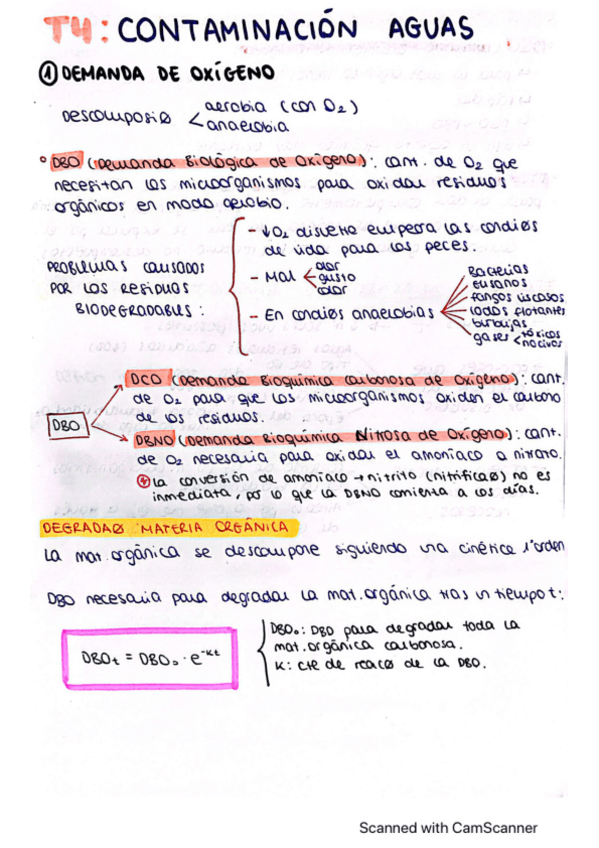 T4: CONTAMINACIÓN AGUAS
① DEMANDA DE OXÍGENO
Descomposiø < aerobia (con O₂)
anaerobia
° DBO (Demanda Biológica de Oxígeno): cant. de O₂ que
necesitan los microorganismos para oxidar residuos
orgánicos en modo aerobio.
PROBLEMAS CAUSADOS
POR LOS RESIDUOS
BIODEGRADABLES:
- ↓O₂ disuelto empeora las condiøes
de vida para los peces.
- Mal < olor
gusto
color
- En condiøes anaerobias
Bacterias
gusanos
fangos viscosos
lodos flotantes
burbujas
gases < tóxicos
nocivos
DBO
DCO (Demanda Bioquímica Carbonosa de Oxígeno): cant.
de O₂ para que los microorganismos oxiden el carbono
de los residuos.
DBNO (Demanda Bioquímica Nitrosa de Oxígeno): cant.
de O₂ necesaria para oxidar el amoníaco a nitrato.
* La conversión de amoníaco → nitrito (nitrificaø) no es
inmediata, por lo que la DBNO comienza a los días.
DEGRADAØ MATERIA ORGÁNICA
La mat. orgánica se descompone siguiendo una cinética 1ºorden
DBO necesaria para degradar la mat. orgánica tras un tiempo t:
DBOt = DBO₀ · e^-kt
DBO₀: DBO para degradar toda la
mat. orgánica carbonosa.
K: cte de reacø de la DBO.
Scanned with CamScanner